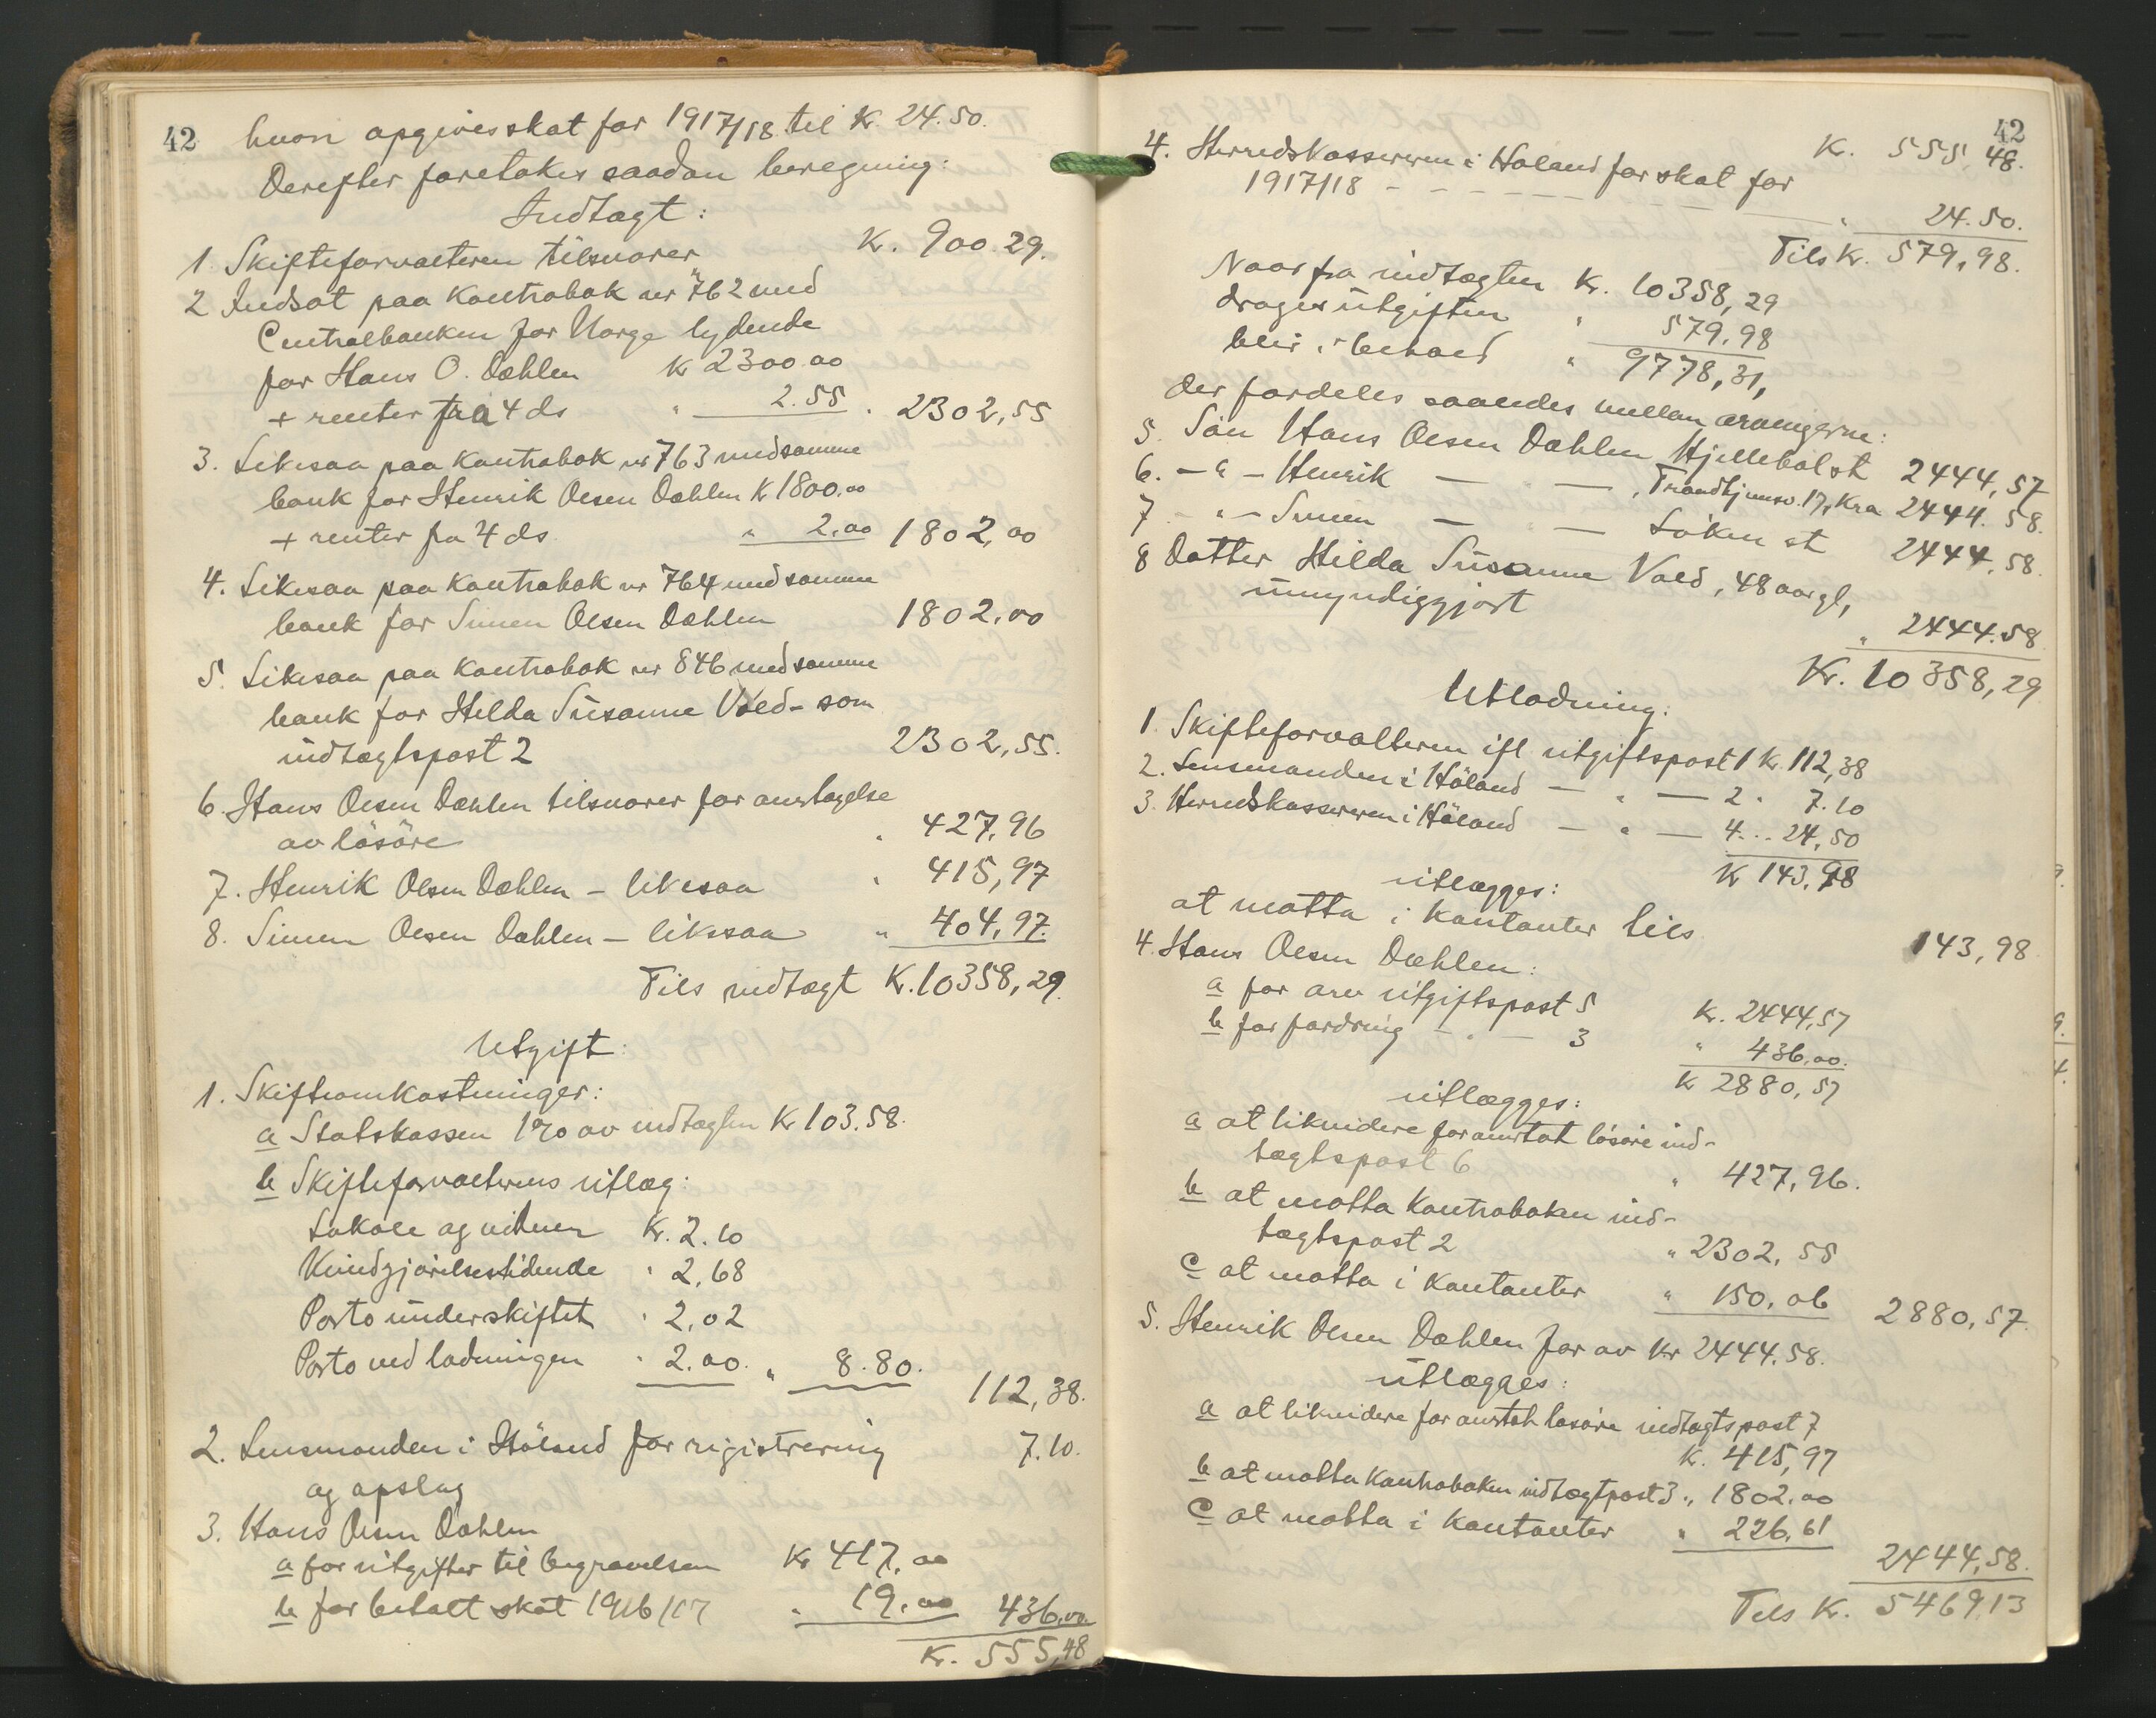 42
hvori opgives skat for 1917/18 til Kr. 24.50.
Derefter foretakes saadan beregning:
Indtægt:
1. Skifteforvalteren tilsvarer K. 900.29.
2 Indsat paa Kontrabok nr 762 med
Centralbanken for Norge lydende
for Hans O. Dæhlen K 2300.00
+ renter fra 4 ds " 2.55 " 2302,55
3. Likesaa paa Kontrabok nr 763 med samme
bank for Henrik Olsen Dæhlen K 1800.00
+ renter fra 4 ds. " 2,00 1802,00
4. Likesaa paa Kontrabok nr 764 med samme
bank for Simen Olsen Dæhlen 1802.00
5. Likesaa paa Kontrabok nr 846 med samme
bank for Hilda Susanne Vold - som
indtægtspost 2 2302,55.
6. Hans Olsen Dæhlen tilsvarer for overtagelse
av løsøre " 427,96
7. Henrik Olsen Dæhlen - likesaa " 415,97
8. Simen Olsen Dæhlen - likesaa " 404,97.
Tils indtægt K. 10358,29.
Utgift:
1. Skifteomkostninger:
a Statskassen 1% av indtægten Kr 103.58.
b Skifteforvalterens utlæg:
Lokale og vidner Kr. 2.10
Kundgjørelsestidende " 2,68
Porto under skiftet " 2,02
Porto ved lodningen " 2.00. " 8.80. 112,38.
2. Lensmanden i Høland for registrering 7.10.
og opslag
3. Hans Olsen Dæhlen
a for utgifter til begravelsen Kr 417,00
b for betalt skat 1916/17 " 19,00 436,00
Kr. 555,48
42
K. 555,48.
4. Herredskassereren i Høland for skat for
1917/18 - - - " 24.50.
Tils Kr. 579,98.
Naar fra indtægten Kr. 10358,29
drages utgiften " 579,98
blir i behold " 9778,31,
der fordeles saaledes mellem arvingerne:
5. Søn Hans Olsen Dæhlen Hjellebøl st 2444,57
6. - " - Henrik — " — , Trondhjemsv. 17, Kra 2444.58.
7 - " - Simen — " — Løken st 2444.58.
8 Datter Hilda Susanne Vold, 48 aar gl,
umyndiggjort " 2444.58
Kr. 10358,29
Utlodning:
1. Skifteforvalteren ifl utgiftspost 1 K. 112,38
2. Lensmanden i Høland — " — 2 " 7.10
3. Herredskassereren i Høland — " — 4 .. 24,50
K 143,98
utlægges:
at motta i kontanter tils 143,98
4. Hans Olsen Dæhlen:
a for arv utgiftspost 5 K. 2444,57
b for fordring - " - 3 " 436,00.
K 2880,57
utlægges:
a at likvidere for overtat løsøre ind-
tægtspost 6 " 427,96.
b at motta Kontraboken ind-
tægtspost 2 " 2302,55
c at motta i kontanter " 150,06 2880,57.
5. Henrik Olsen Dæhlen for arv Kr 2444.58.
utlægges:
a at likvidere for overtat løsøre indtægtspost 7
K. 415,97
b at motta Kontraboken indtægtpost 3 " 1802.00
c at motta i kontanter " 226,61
2444,58.
Tils K. 5469,13